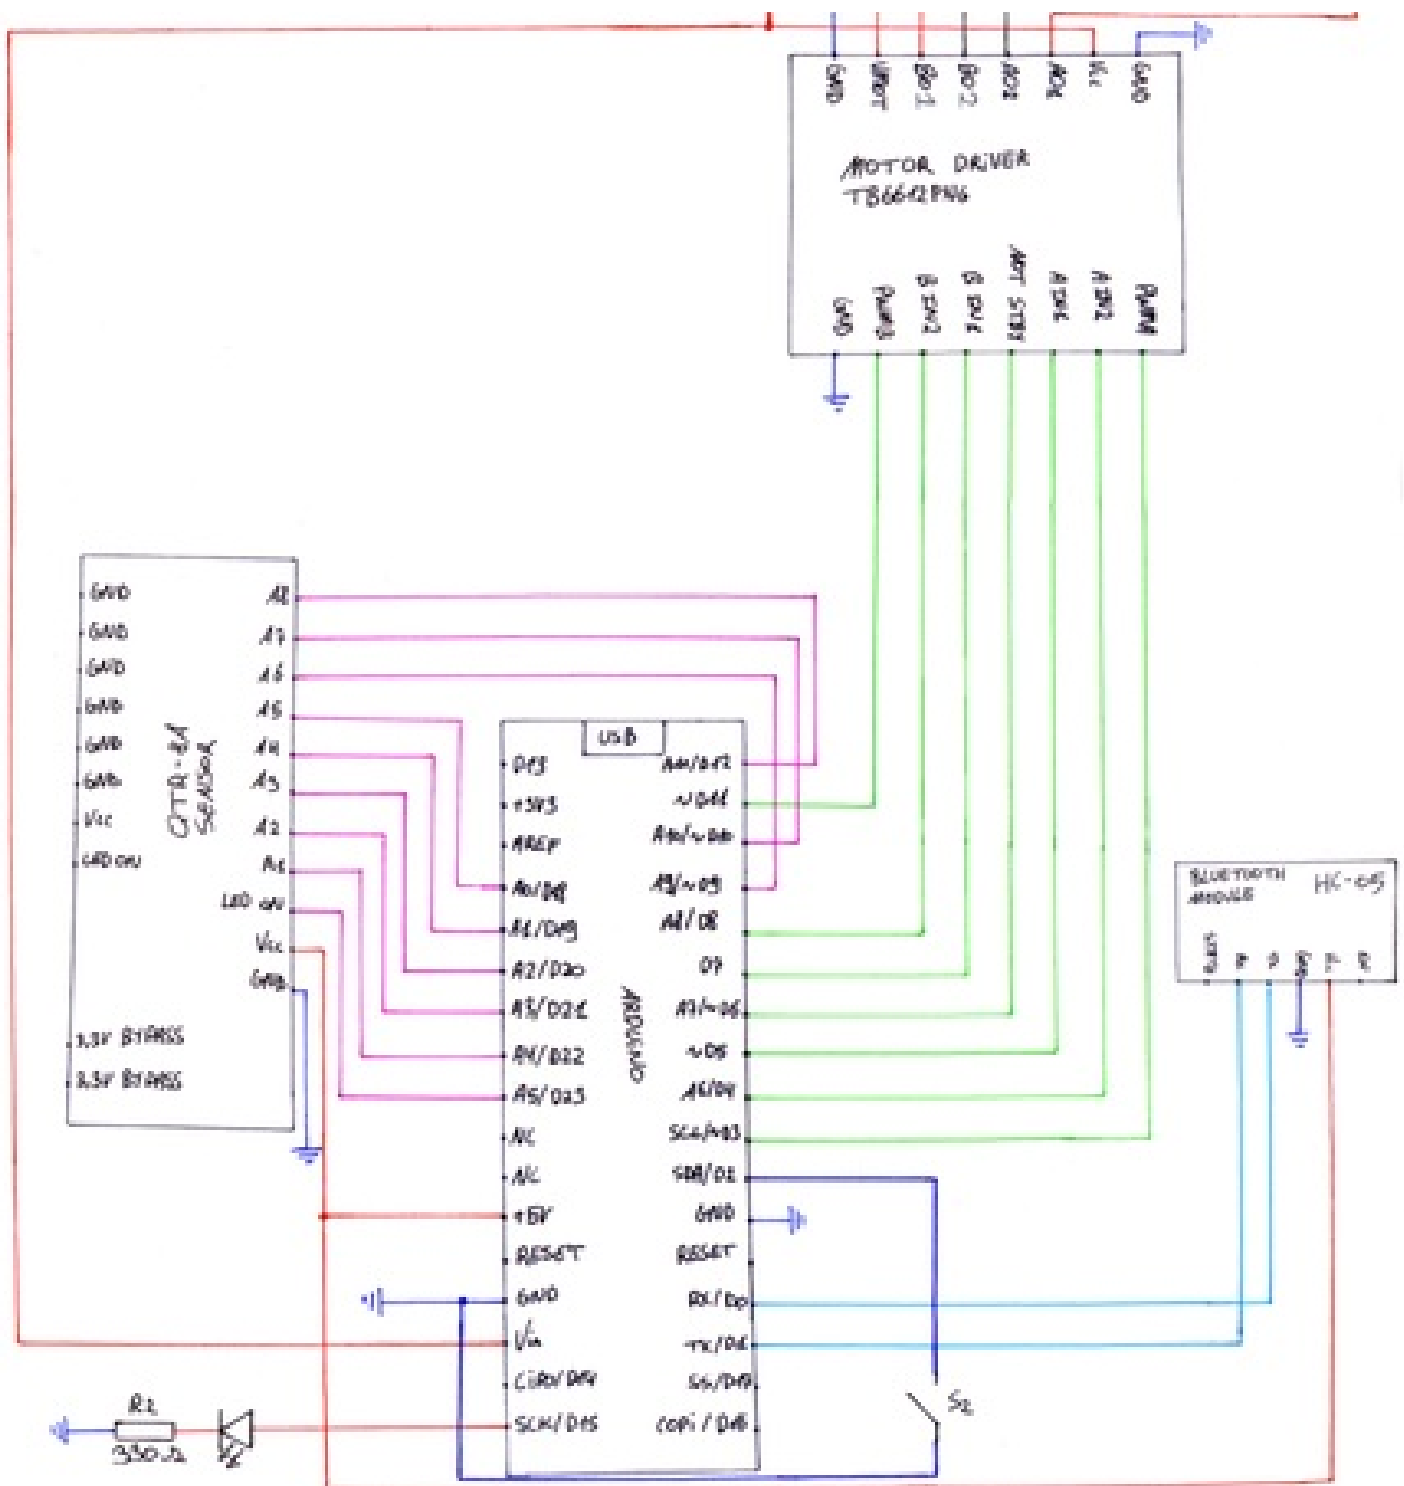 GND
VMOT
BO1
BO2
AO2
AO1
VCC
GND
MOTOR DRIVER
TB6612FNG
GND
PWMB
BIN2
BIN1
NOT STBY
AIN1
AIN2
PWMA
GND
GND
GND
GND
GND
GND
VCC
LED ON
3,3V BYPASS
3,3V BYPASS
QTR-8A
SENSOR
A8
A7
A6
A5
A4
A3
A2
A1
LED ON
VCC
GND
USB
D13
+3V3
AREF
A0/D18
A1/D19
A2/D20
A3/D21
A4/D22
A5/D23
NC
NC
+5V
RESET
GND
Vin
CiPO/D14
SCK/D15
ARDUINO
A11/D12
~D11
A10/~D10
A9/~D9
A8/D8
D7
A7/~D6
~D5
A6/D4
SCL/~D3
SDA/D2
GND
RESET
RX/D0
TX/D1
SS/D17
COPi/D16
BLUETOOTH
MODULE
HC-05
STATE
RX
TX
GND
VCC
EN
S2
R2
330Ω